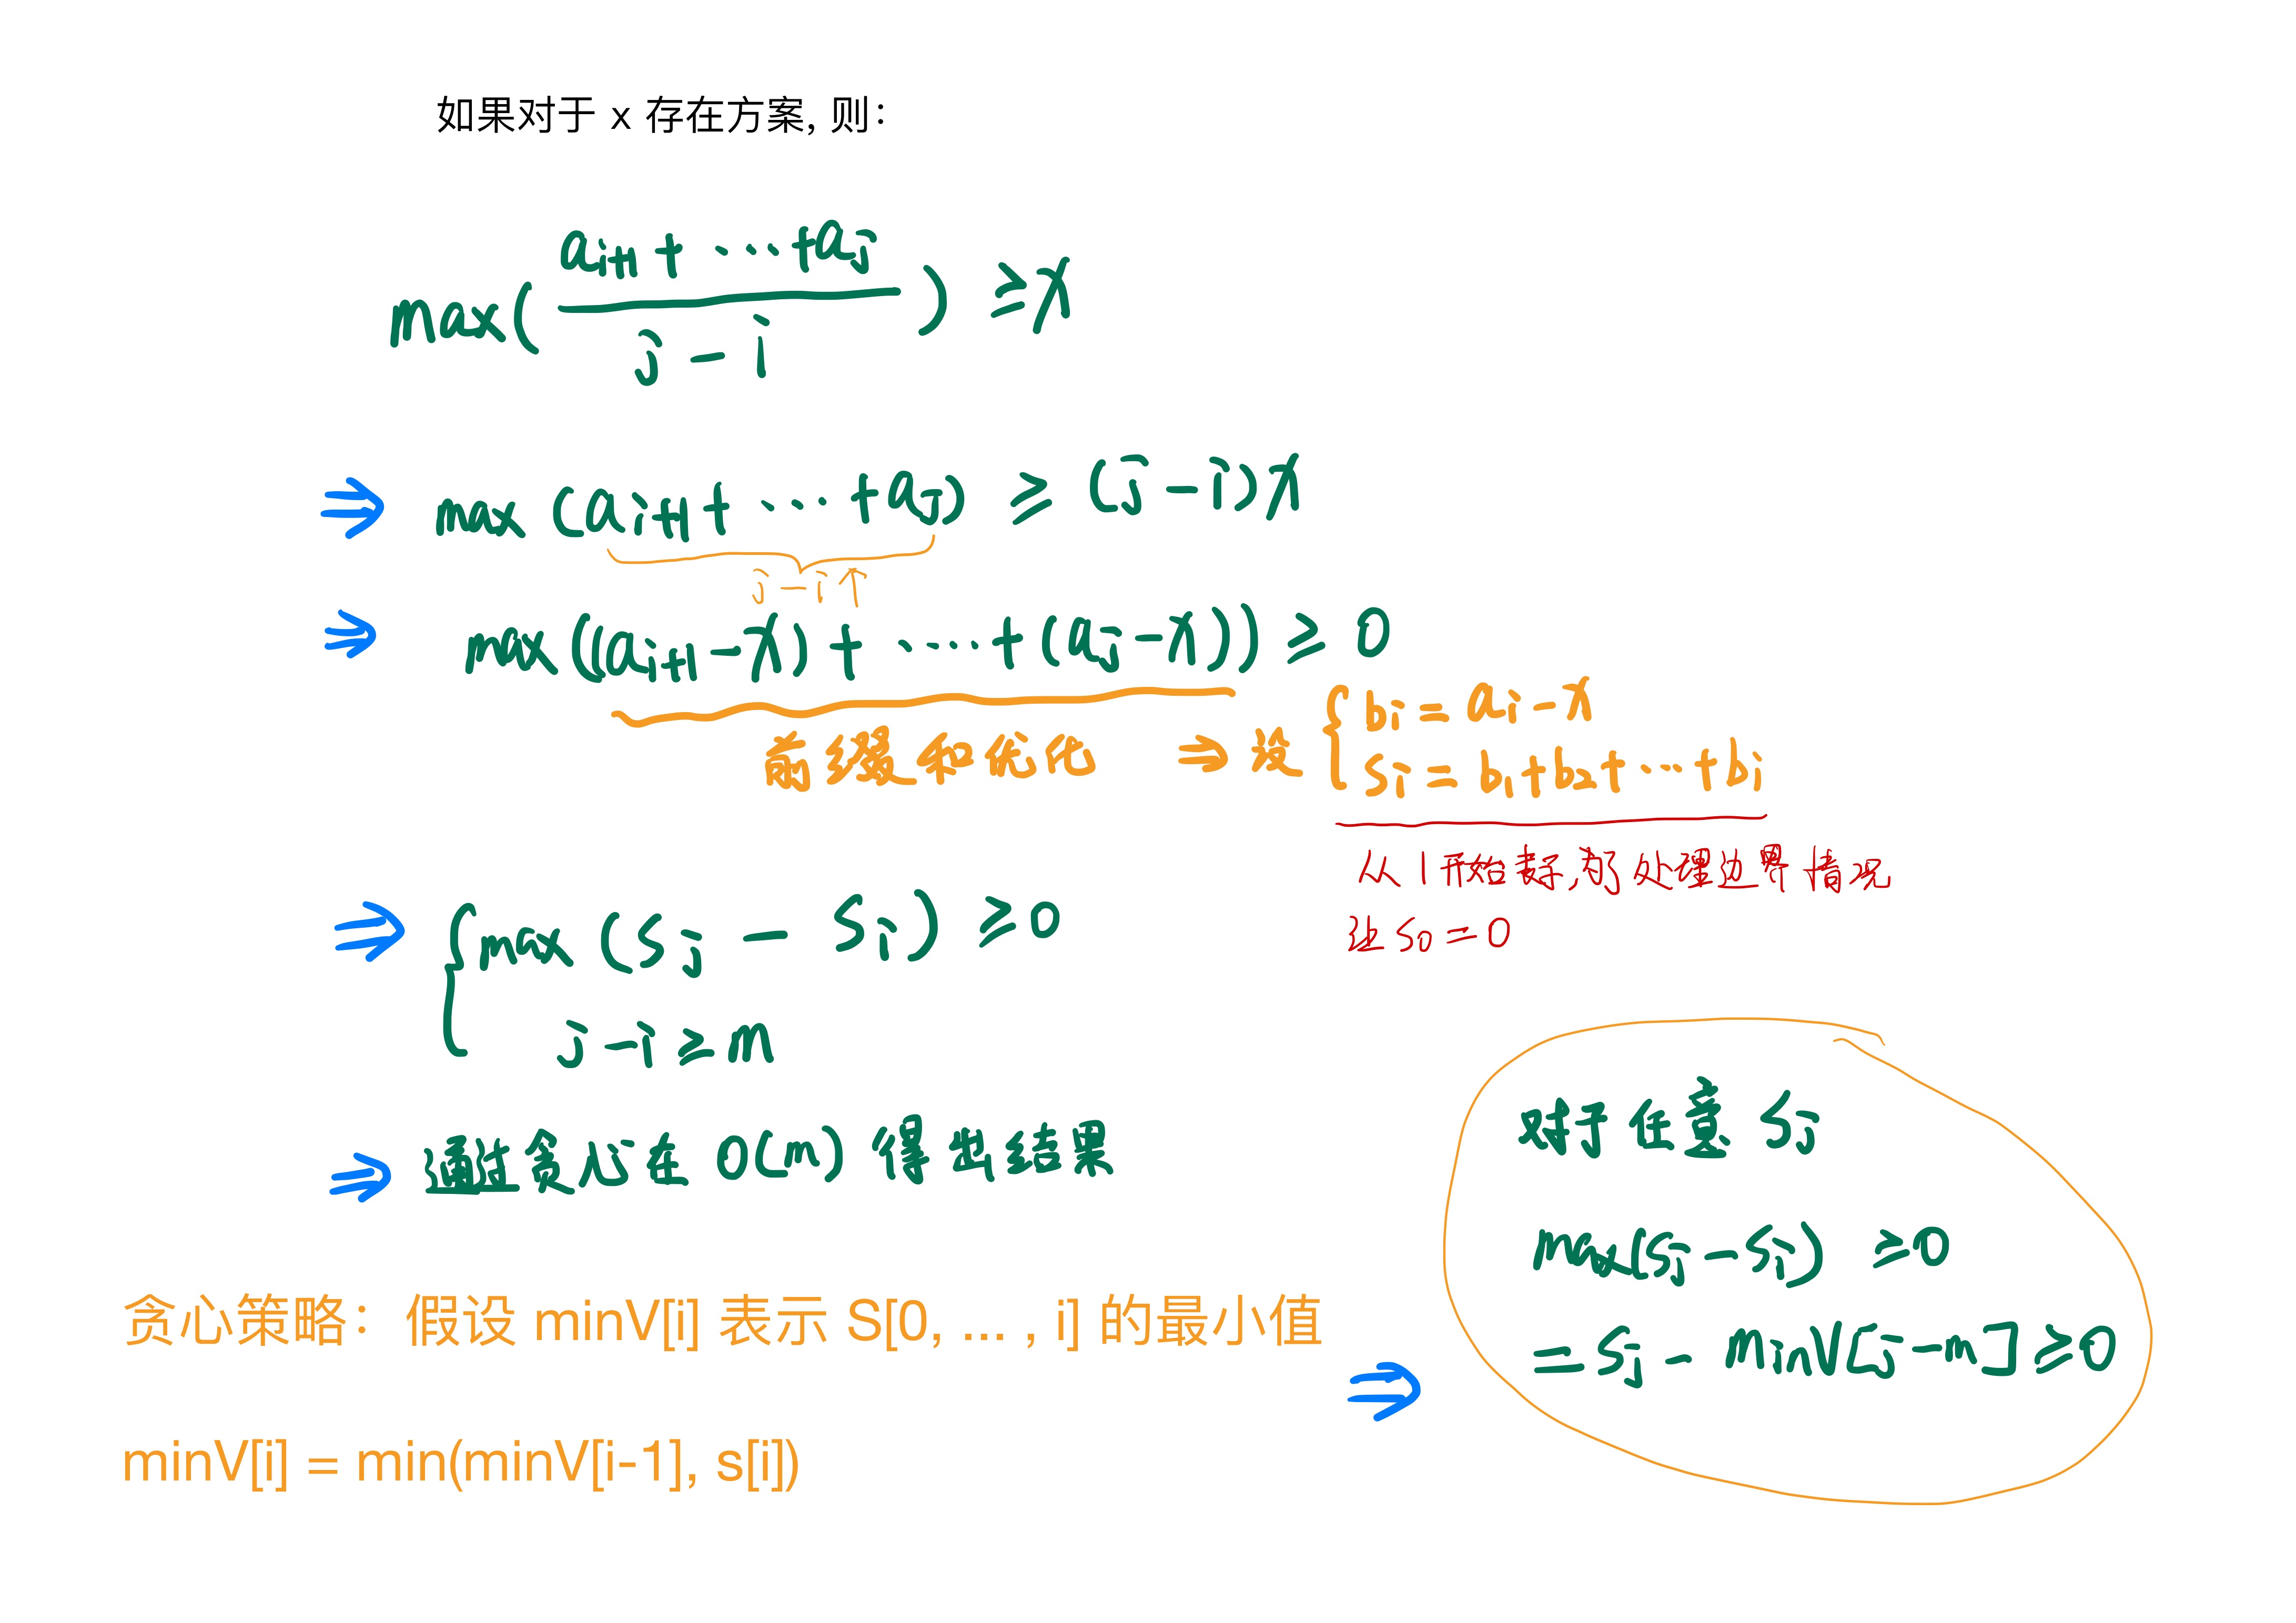 如果对于 x 存在方案, 则:
max( (a_{i+1} + ... + a_j) / (j - i) ) ≥ x
⇒ max (a_{i+1} + ... + a_j) ≥ (j - i) x
j - i 个
⇒ max ((a_{i+1} - x) + ... + (a_j - x)) ≥ 0
前缀和优化 ⇒ 设 { b_i = a_i - x
S_i = b_1 + b_2 + ... + b_i
从 1 开始表示, 处理边界情况
让 S_0 = 0
⇒ { max (S_j - S_i) ≥ 0
j - i ≥ m
⇒ 通过贪心在 O(m) 得出结果
贪心策略: 假设 minV[i] 表示 S[0, ... , i] 的最小值
minV[i] = min(minV[i-1], s[i])
⇒
对于任意 S_j
max(S_j - S_i) ≥ 0
= S_j - minV[j-m] ≥ 0